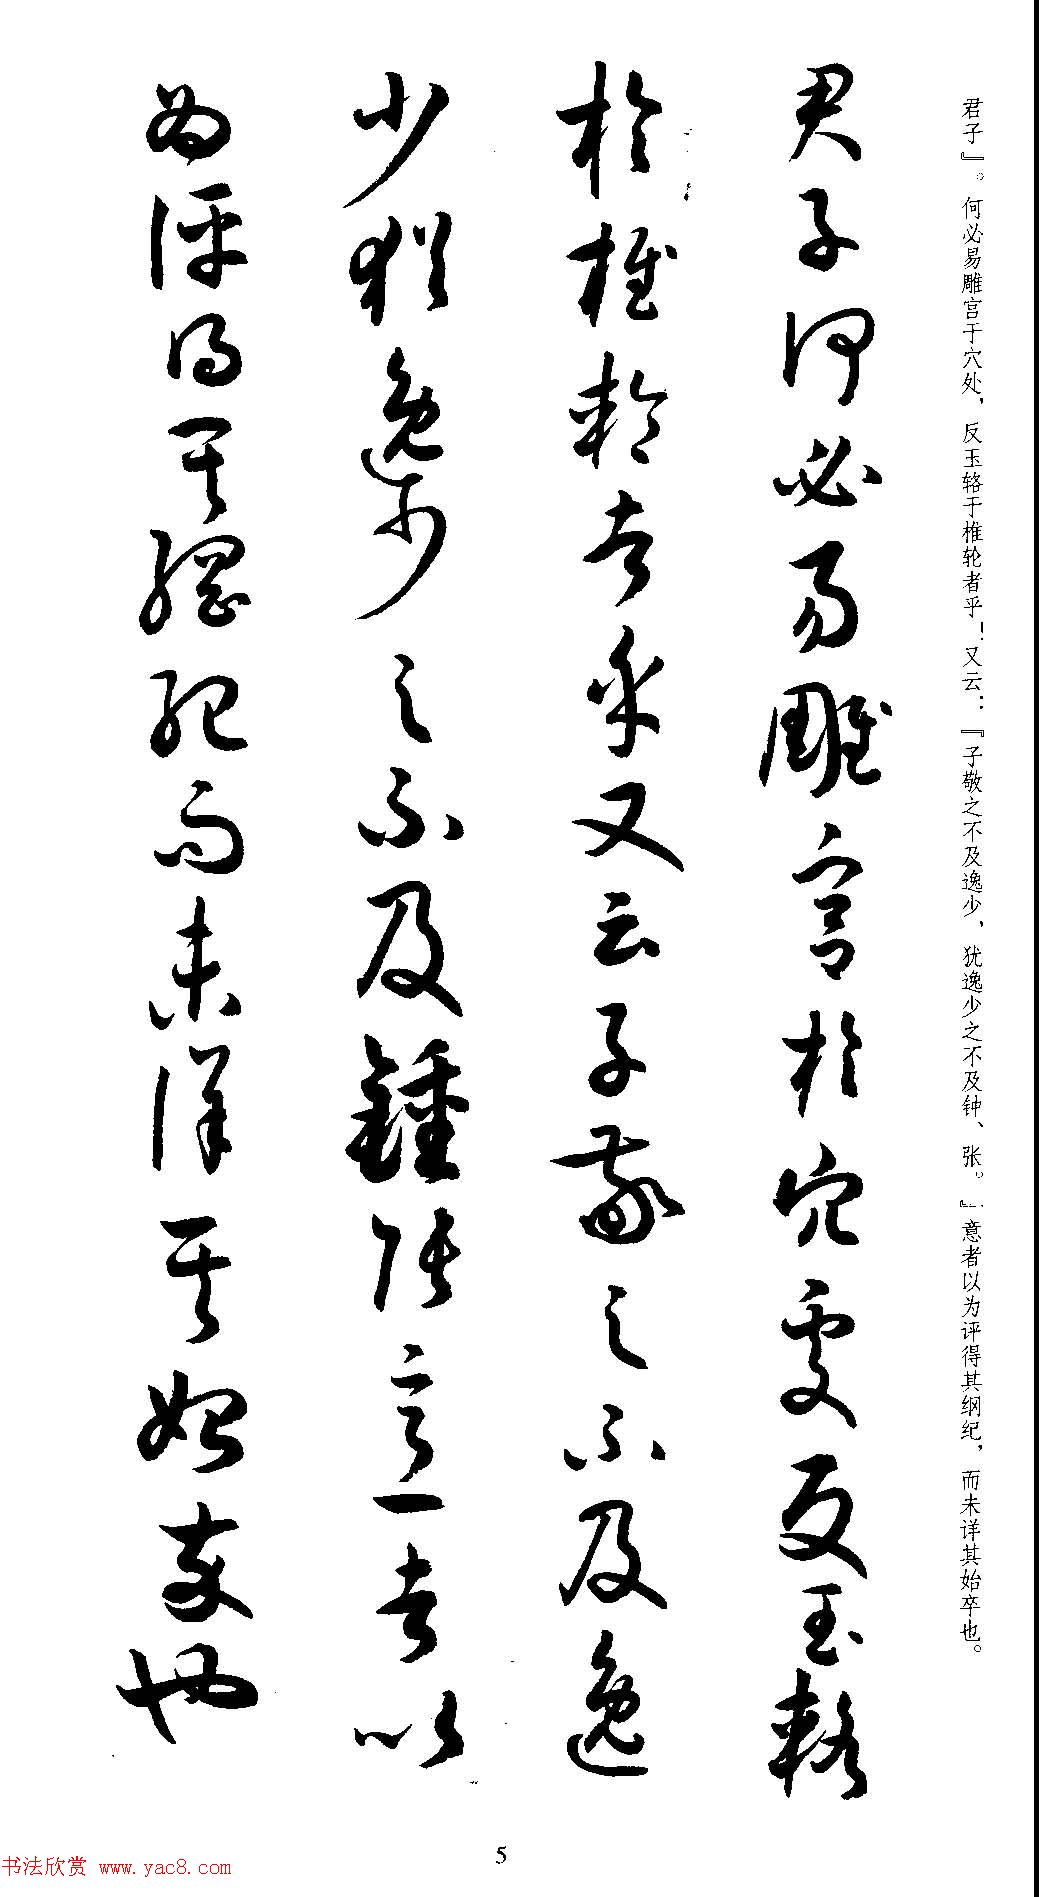 君子』。何必易雕宫于穴处，反玉辂于椎轮者乎！又云：『子敬之不及逸少，犹逸少之不及钟、张。』意者以为评得其纲纪，而未详其始卒也。
君子何必易雕宫於穴處反玉輅
於椎輪者乎又云子敬之不及逸
少猶逸少之不及鍾張意者以
為評得其綱紀而未詳其始卒也
5
书法欣赏 www.yac8.com